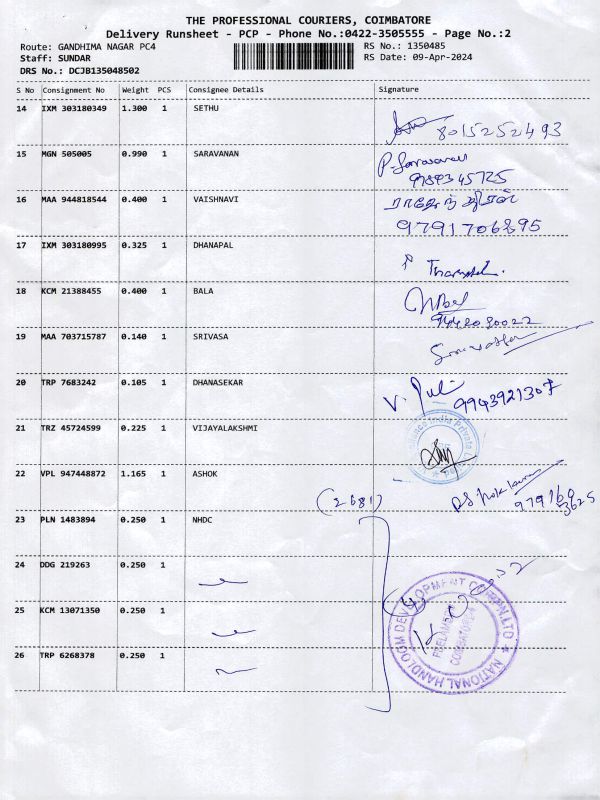 THE PROFESSIONAL COURIERS, COIMBATORE
Delivery Runsheet - PCP - Phone No.:0422-3505555 - Page No.:2
Route: GANDHIMA NAGAR PC4 RS No.: 1350485
Staff: SUNDAR RS Date: 09-Apr-2024
DRS No.: DCJB135048502
S No Consignment No Weight PCS Consignee Details Signature
14 IXM 303180349 1.300 1 SETHU
8015252493
15 MGN 505005 0.990 1 SARAVANAN P. Saravanan
9789345725
16 MAA 944818544 0.400 1 VAISHNAVI
9791706895
17 IXM 303180995 0.325 1 DHANAPAL
18 KCM 21388455 0.400 1 BALA
9442030022
19 MAA 703715787 0.140 1 SRIVASA
20 TRP 7683242 0.105 1 DHANASEKAR V.
9943921307
21 TRZ 45724599 0.225 1 VIJAYALAKSHMI
India Private
22 VPL 947448872 1.165 1 ASHOK
(2681)
23 PLN 1483894 0.250 1 NHDC
24 DDG 219263 0.250 1
25 KCM 13071350 0.250 1
26 TRP 6268378 0.250 1
NATIONAL HANDLOOM DEVELOPMENT CORPN.LTD
PEELAMEDU
COIMBATORE